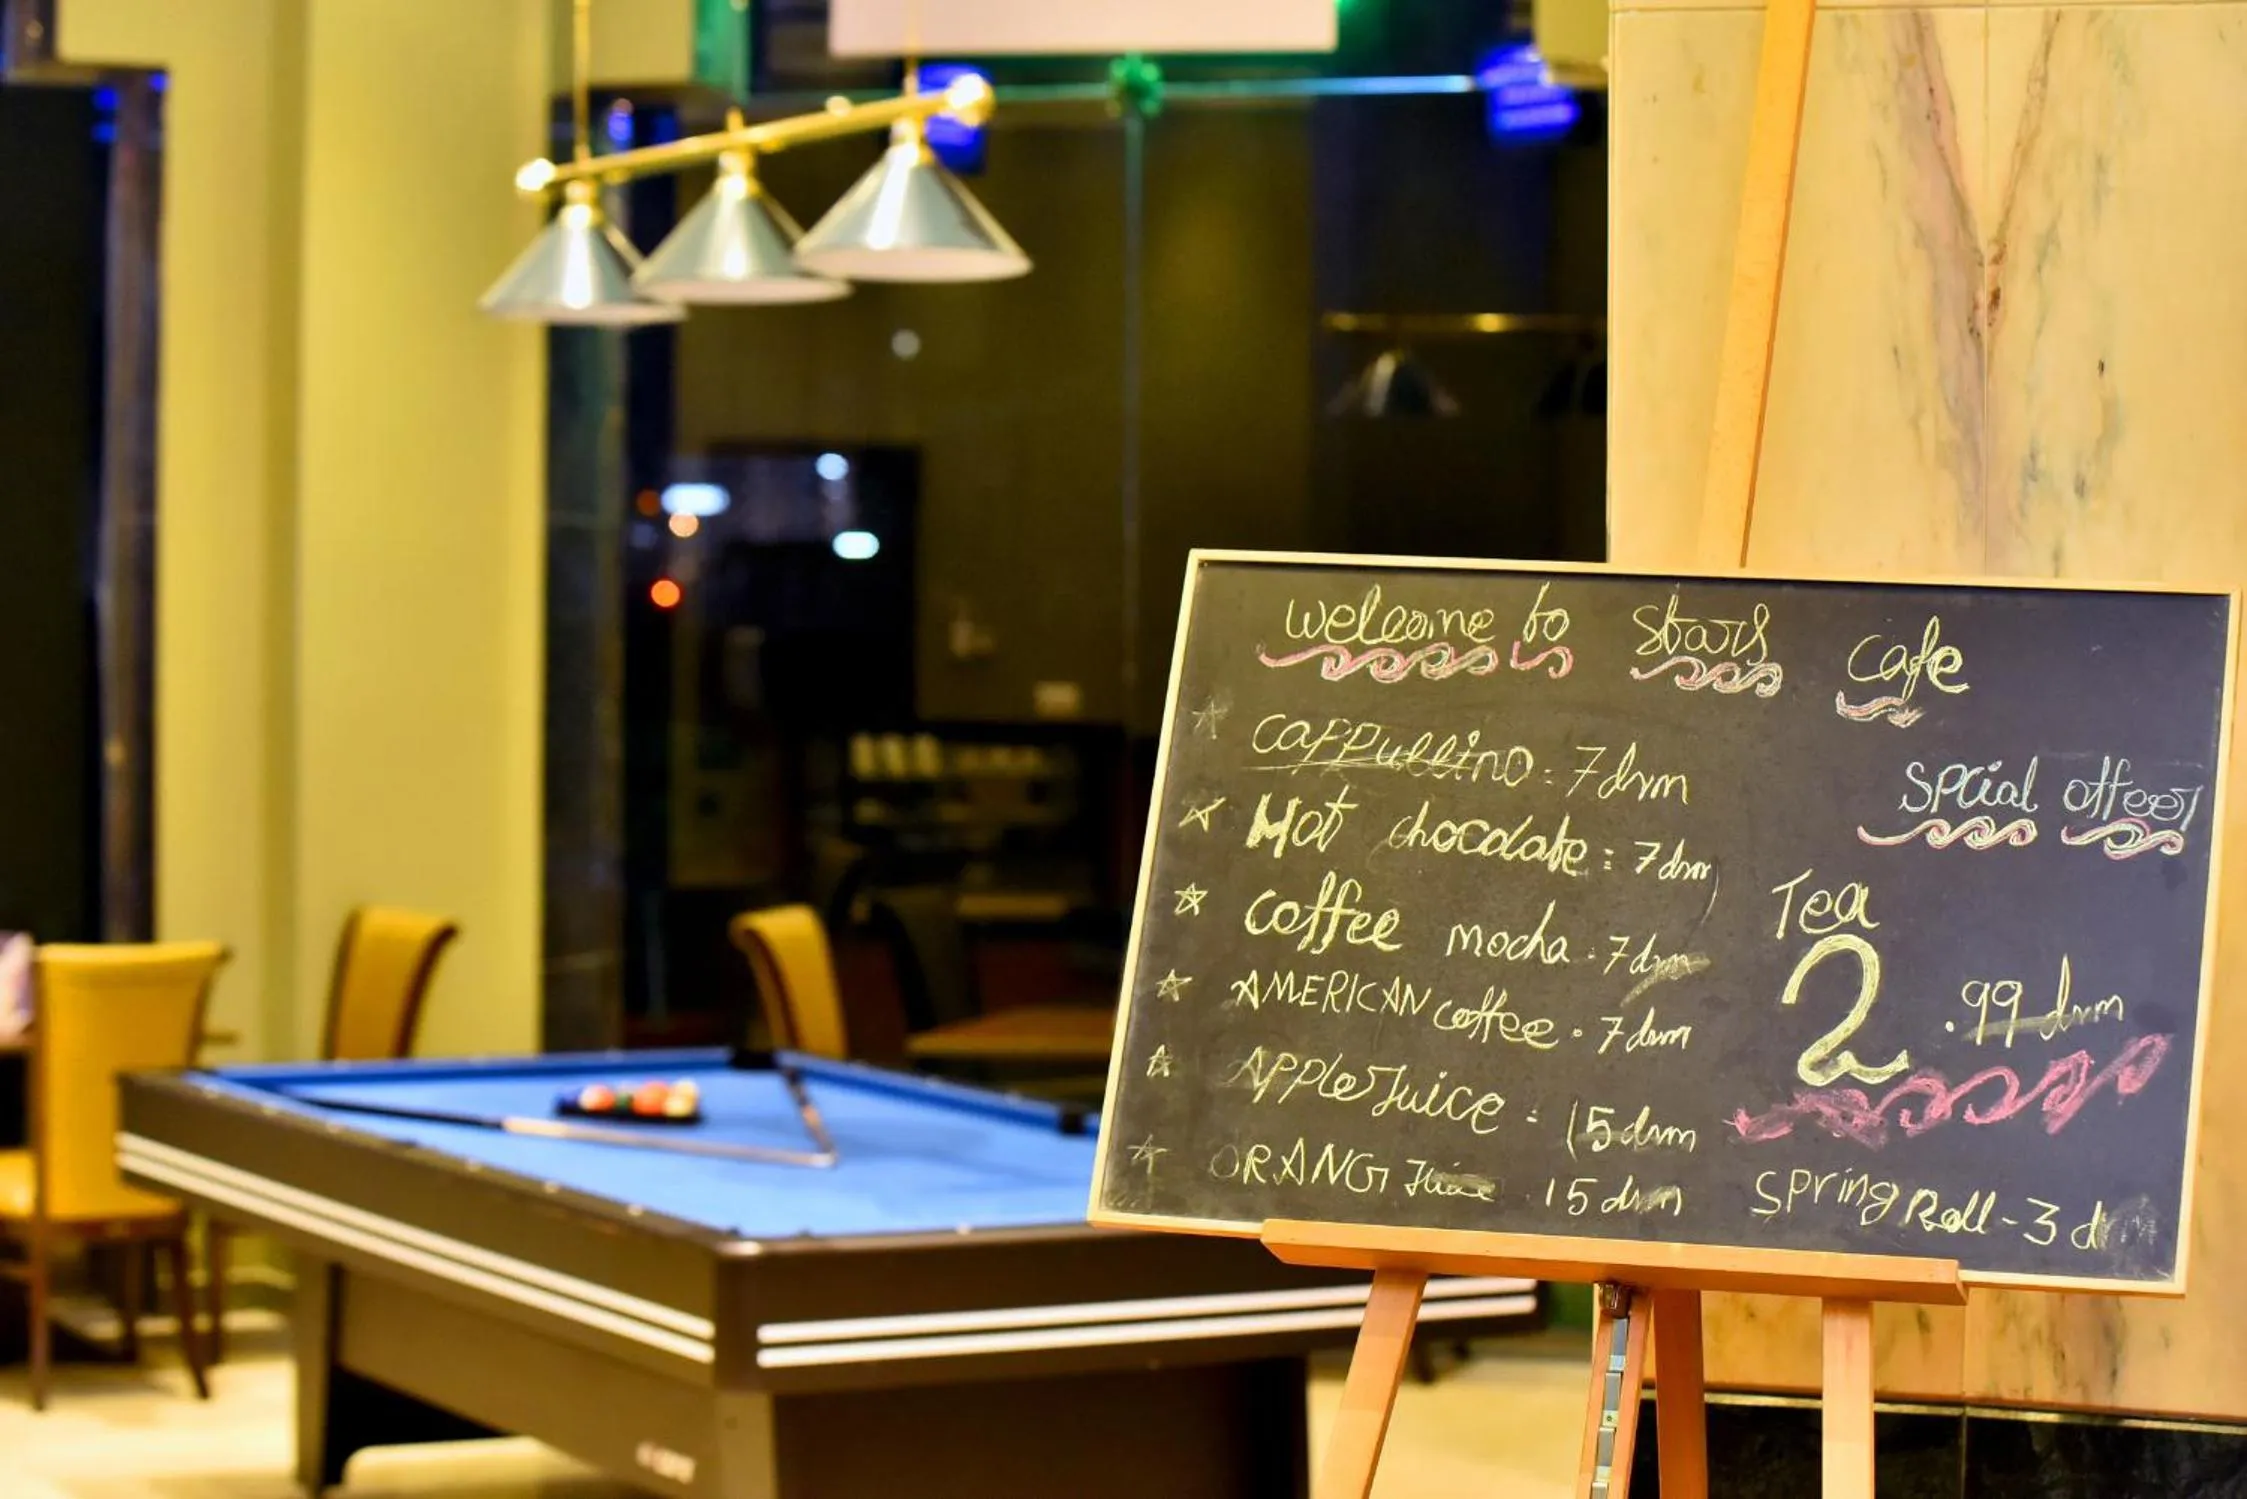 welcome to stars cafe
cappuccino : 7 drm
Hot chocolate : 7 drm
coffee mocha . 7 drm
AMERICAN coffee . 7 drm
APPle Juice : 15 drm
ORANG Juice . 15 drm
special offeer
Tea
2.99 drm
spring Roll - 3 drm